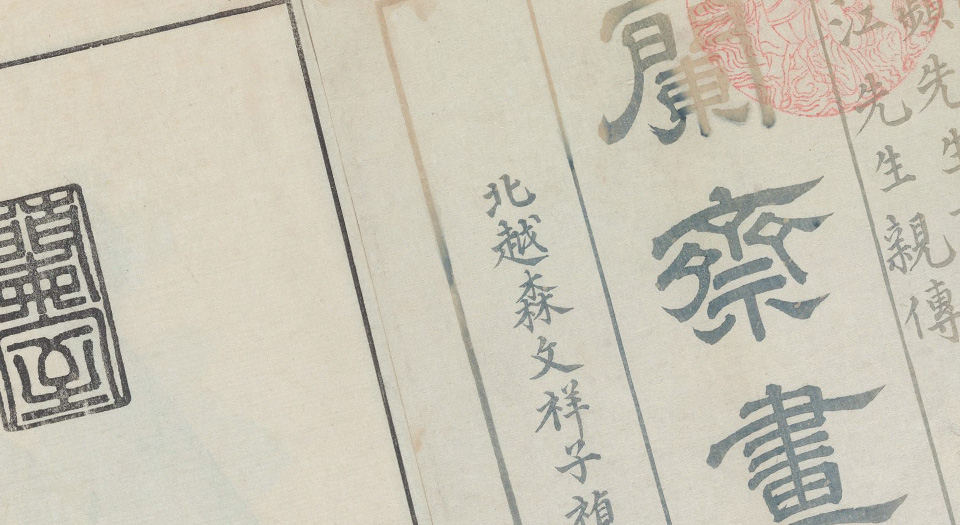 蘋先生
江先生親傳
蘭齋畫
北越森文祥子禎